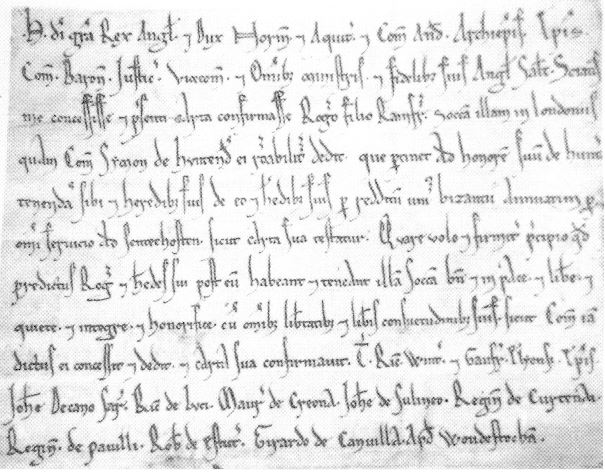 .H. di gra Rex Angl. ⁊ Dux Norm. ⁊ Aquit. ⁊ Com And. Archiepis. Epis.
Com. Baron. Justic. Vicecom. ⁊ Omib; ministris. ⁊ fidelib; suis Angl Salt. Sciatis
me concessisse ⁊ psenti carta confirmasse Rogo filio Rainfr. soccā illam in Londoniis
quam Com Symon de ei ⁊ dedit. que ptinet ad honorē suum de
tenendā sibi ⁊ heredib; suis de eo ⁊ hedib; suis p redditū uni bizantii annuatim p
omi servicio ad sicut carta sua testatur. Quare volo ⁊ firmit pcipio qd
predictus Rog ⁊ hedes sui post eū habeant ⁊ teneant illā Soccā bn̄ ⁊ in pace. ⁊ libe. ⁊
quiete. ⁊ integre. ⁊ honorifice. cū omib; libtatib; ⁊ libis consuetudinib; suis. sicut Com iā
dictus ei concessit ⁊ dedit. ⁊ carta sua confirmavit. T. Ric Wint. ⁊ Gaufr. Elyensi. Epis.
Johe Decano Sar. Ric de Luci. Maur de Creona. Johe de Sulineo. Regin de Curtenai.
Regin. de pavilli. Rob de Stut. Girardo de Canvilla. Apd Wodestocham.